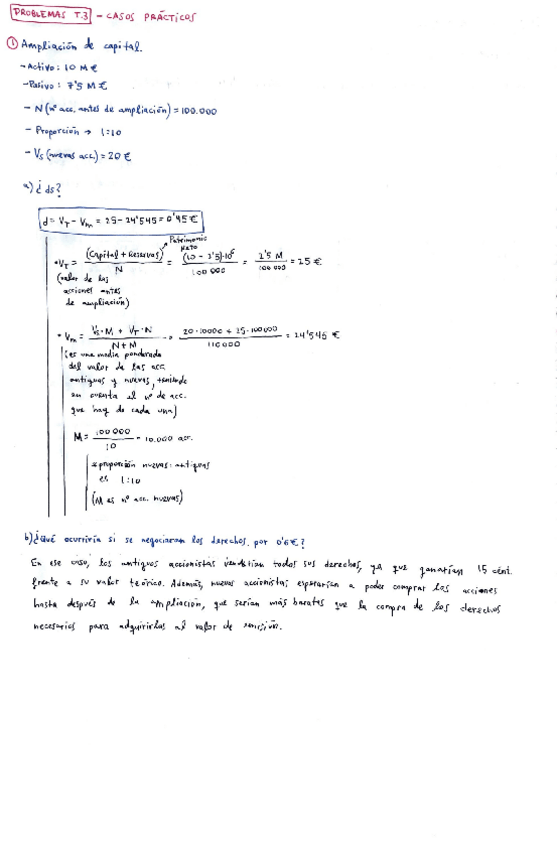 PROBLEMAS T.3 - CASOS PRÁCTICOS
① Ampliación de capital.
- Activo: 10 M €
- Pasivo: 7'5 M €
- N (nº acc. antes de ampliación) = 100.000
- Proporción → 1:10
- Vs (nuevas acc.) = 20 €
a) ¿ds?
d = VT - Vm = 25 - 24'545 = 0'45 €
Patrimonio Neto
• VT = (Capital + Reservas) / N = (10 - 7'5)·10⁶ / 100 000 = 2'5 M / 100 000 = 25 €
(valor de las
acciones antes
de ampliación)
• Vm = Vs·M + VT·N / N + M = 20·10000 + 25·100000 / 110000 = 24'545 €
(es una media ponderada
del valor de las acc.
antiguas y nuevas, teniendo
en cuenta el nº de acc.
que hay de cada una)
M = 100 000 / 10 = 10.000 acc.
* proporción nuevas: antiguas
es 1:10
(M es nº acc. nuevas)
b) ¿Qué ocurriría si se negociaran los derechos por 0'6 €?
En ese caso, los antiguos accionistas venderían todos sus derechos, ya que ganarían 15 cént.
frente a su valor teórico. Además, nuevos accionistas esperarían a poder comprar las acciones
hasta después de la ampliación, que serían más baratas que la compra de los derechos
necesarios para adquirirlas al valor de emisión.